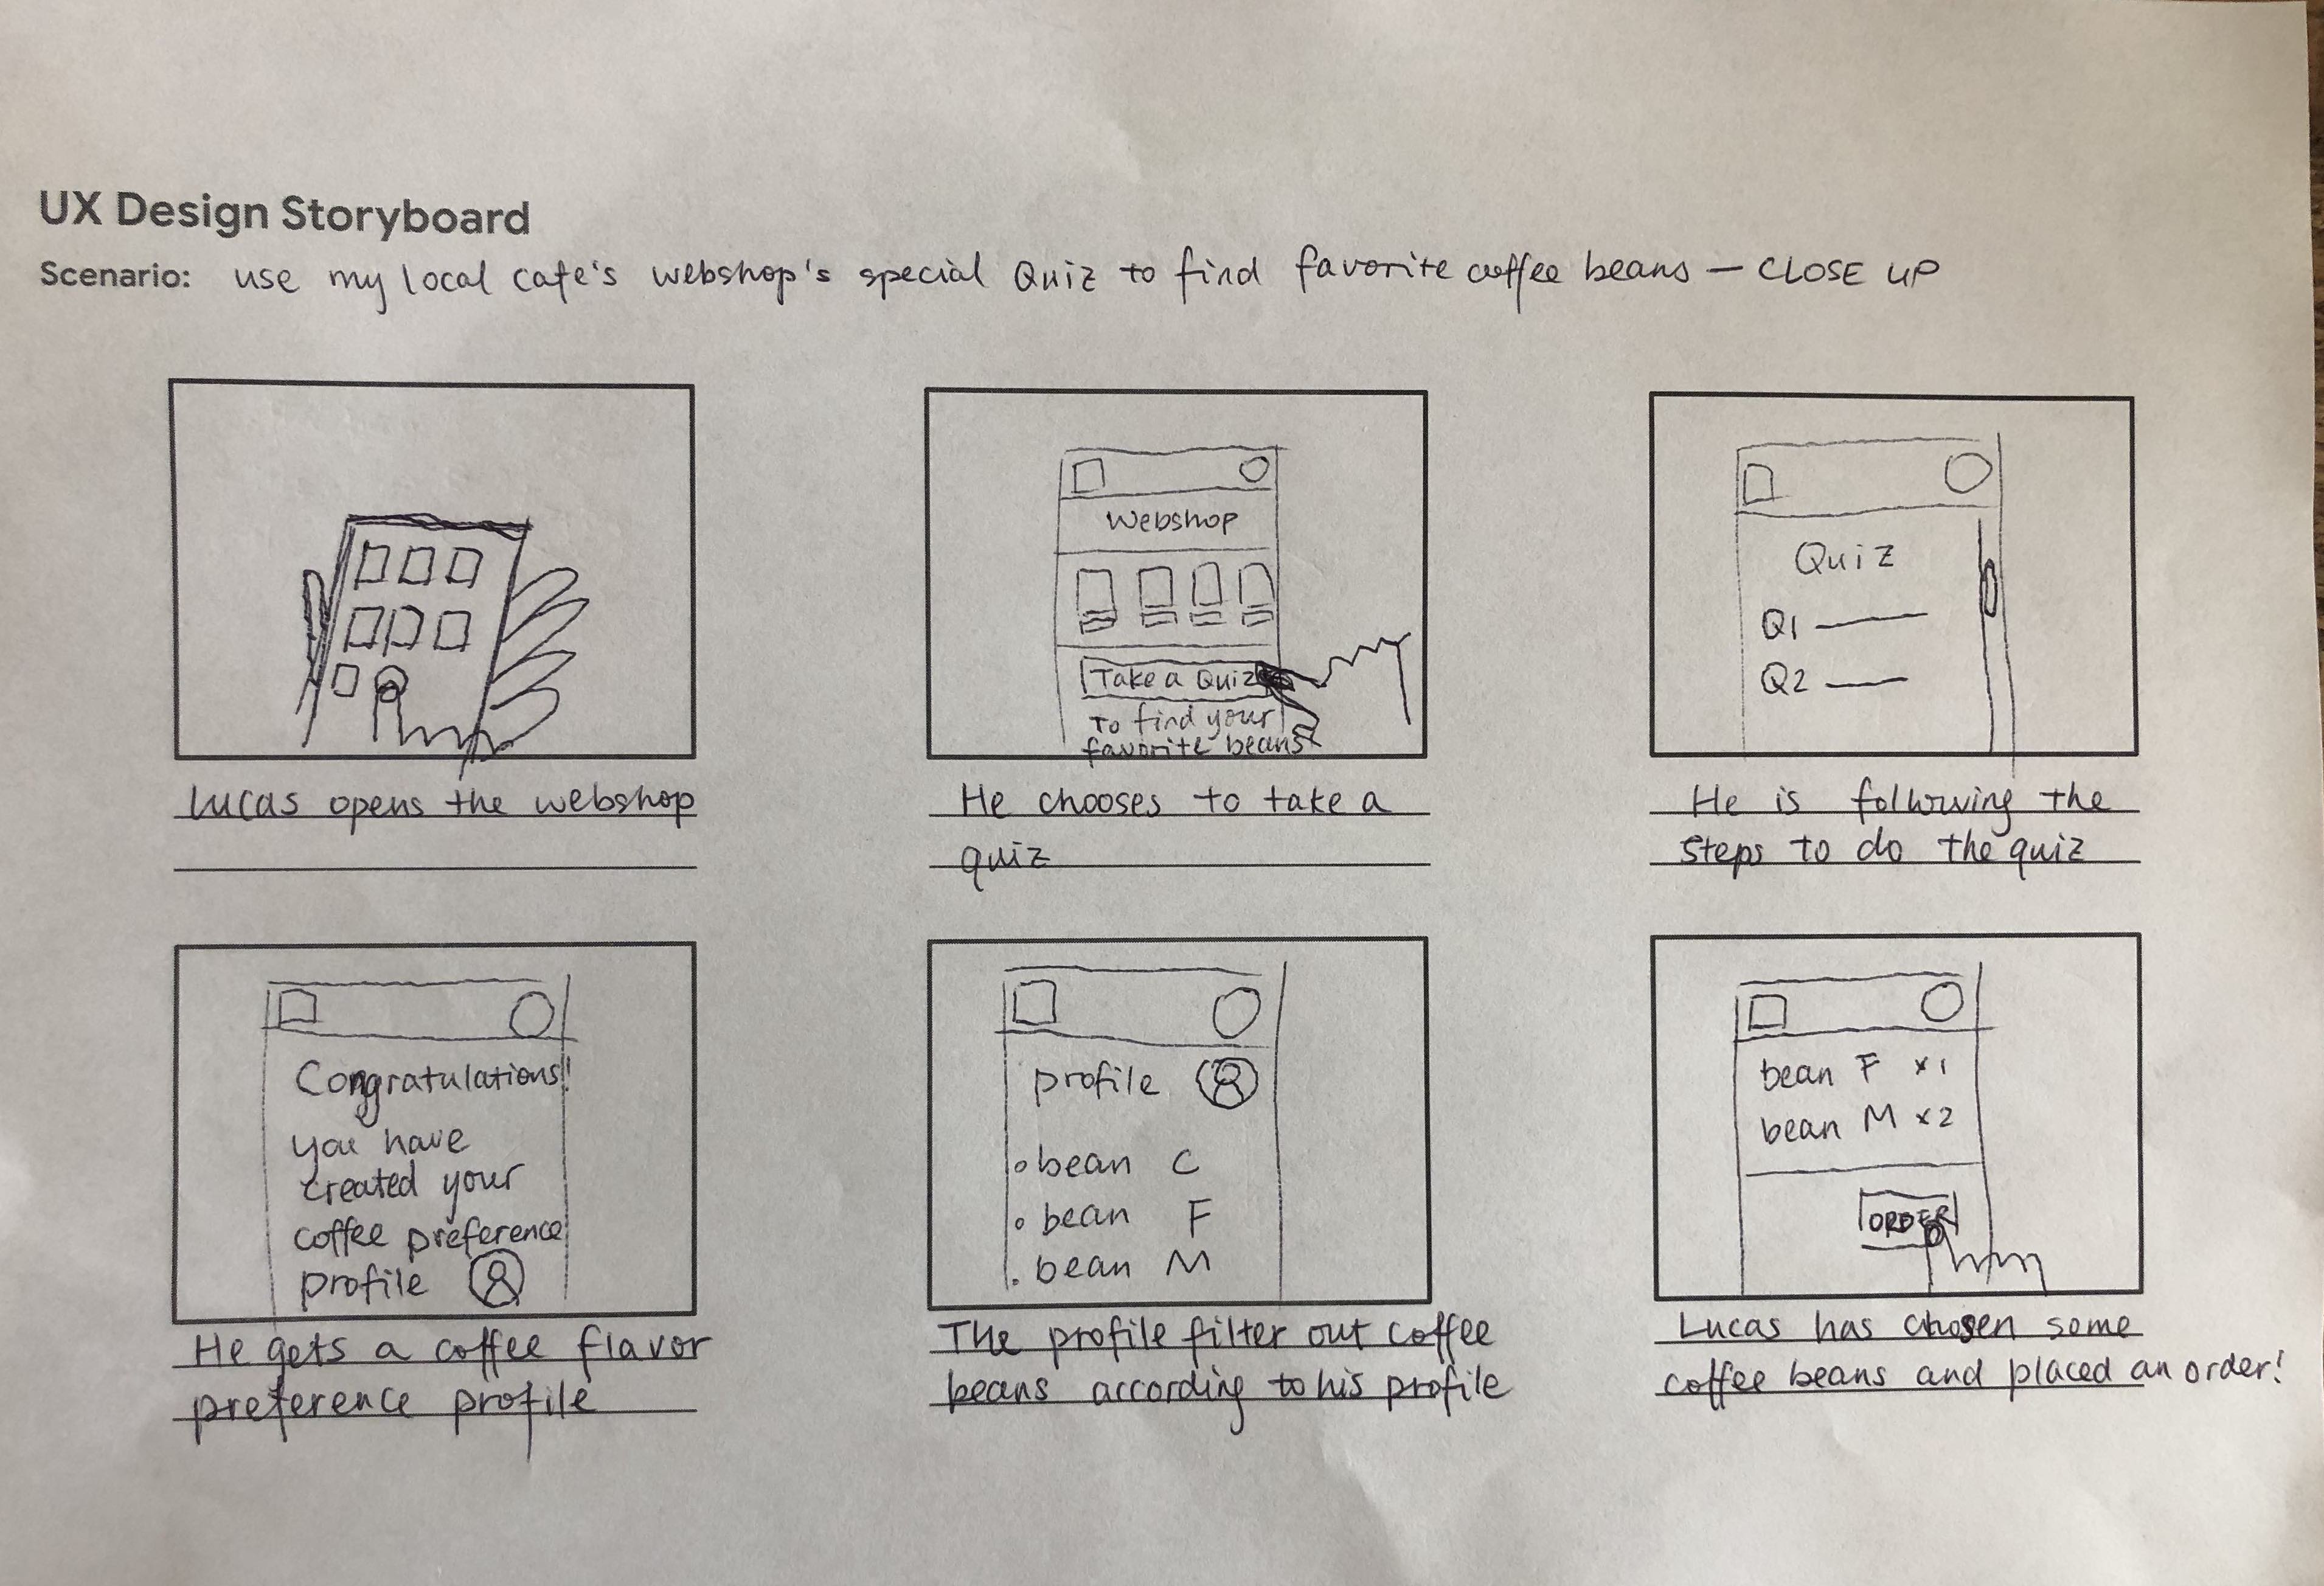 UX Design Storyboard
Scenario: use my local cafe's webshop's special Quiz to find favorite coffee beans — CLOSE UP
Webshop
Take a Quiz
To find your
favorite beans
Quiz
Q1
Q2
Lucas opens the webshop
He chooses to take a
quiz
He is following the
steps to do the quiz
Congratulations!
you have
created your
coffee preference
profile
profile
bean C
bean F
bean M
bean F x1
bean M x2
ORDER
He gets a coffee flavor
preference profile
The profile filter out coffee
beans according to his profile
Lucas has chosen some
coffee beans and placed an order!